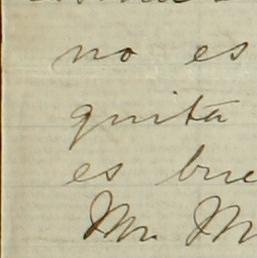 no es
quita
es bue
Mr. M